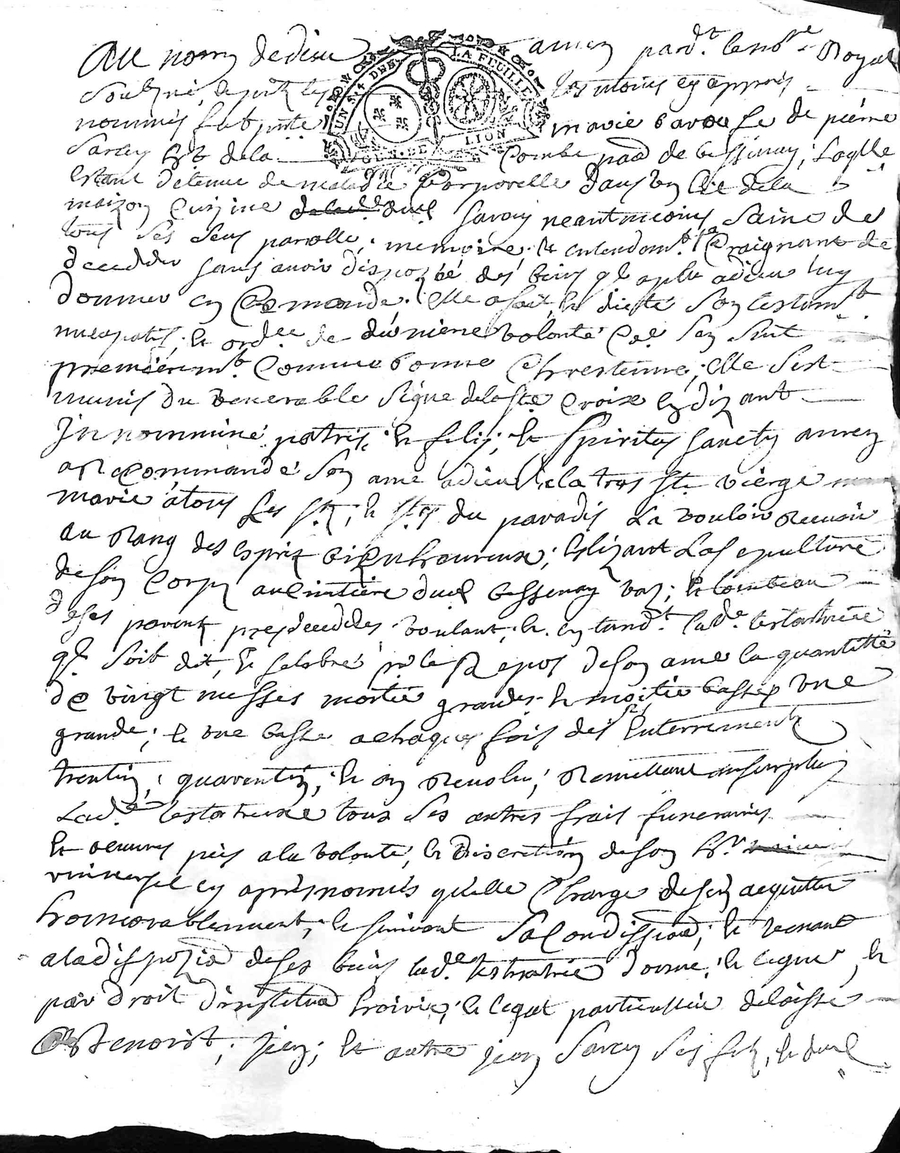 Au nom de dieu amen pard.t le no.re Royal
soubzné, et prt les tesmoins cy appres
UN S. 4 D. LA FEUILLE
GEN. DE LION
nommés fut prnte marie bavose de pierre
Sarcey ht de la Combe paā de bessenay, Laqlle
Estant détenue de maladie Corporelle dans un lit de la
maizon Cuizine dud Sarcey neantmoins saine de
tous ses sens parolle, memoire, et entendem.t Craignant de
decedder sans avoir dispozé des biens ql a plu a dieu luy
donner en Ce monde. Elle a fait, et dicté son testam.t
nuncupatif, et ord.ce de dernière volonté Coe Sen suit
premierem.t Comme bonne Chrestienne, Elle s'est
munie du venerable signe de la Ste Croix En dizant
In nommine patris, et filij, et Spiritus sancty amen
a Recommandé son ame a dieu, et a la tres Ste vierge
marie a tous Les Sts, et Stes du paradis La vouloir Recevoir
au Rang des Esprits bienheureux; Eslizant La sepulture
de son Corps au cimitière dud bessenay vas, et tombeau
de ses parents predeceddés, voulant, et entand.t lad.e testatrice
ql soit dit, et celebré pr le Repos de son ame la quantitté
de vingt messes moitié grandes et moitié basses une
grande, et une basse a chaques fois de ses Enterrement
trentin, quarentin, et an Revolu, Remettant au surplus
Lad.e testatrice tous ses autres frais funeraires
Et oeuvres pies a la volonté, et discrétion de son hr.
universel cy après nommés qu'elle Charge de s'en acquitter
honnorablement, et suivant sa Condission, et venant
a la dispozion de ses biens lad.e testatrice donne, et legue, et
par droit d'institution hoirie, et legat particullier delaisse
a Benoist, jean, et autre jean Sarcey ses fils, et dud